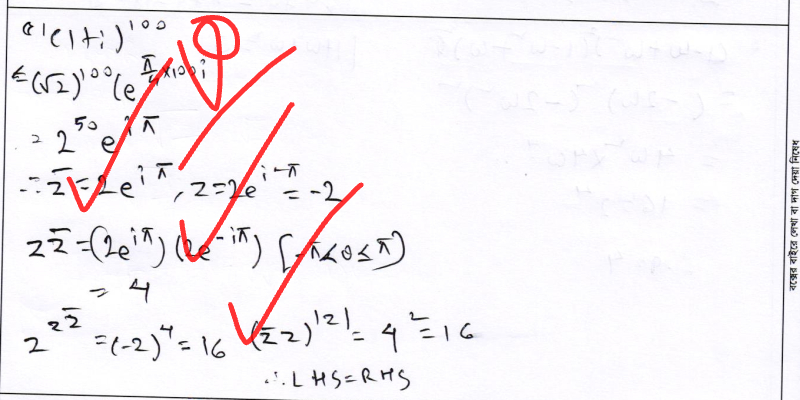 (1+i)^100
= (√2)^100 (e^(π/4 × 100 i)
= 2^50 e^(iπ)
∴ z̄ = 2e^(iπ), z = 2e^(i-π) = -2
z z̄ = (2e^(iπ)) (2e^(-iπ)) [-π<θ≤π)
= 4
z^(z z̄) = (-2)^4 = 16 (z̄z)^|z| = 4^2 = 16
∴ LHS = RHS
বক্সের বাইরে লেখা বা দাগ দেয়া নিষেধ